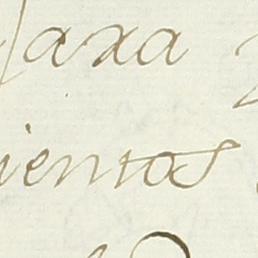 faxa
ientos